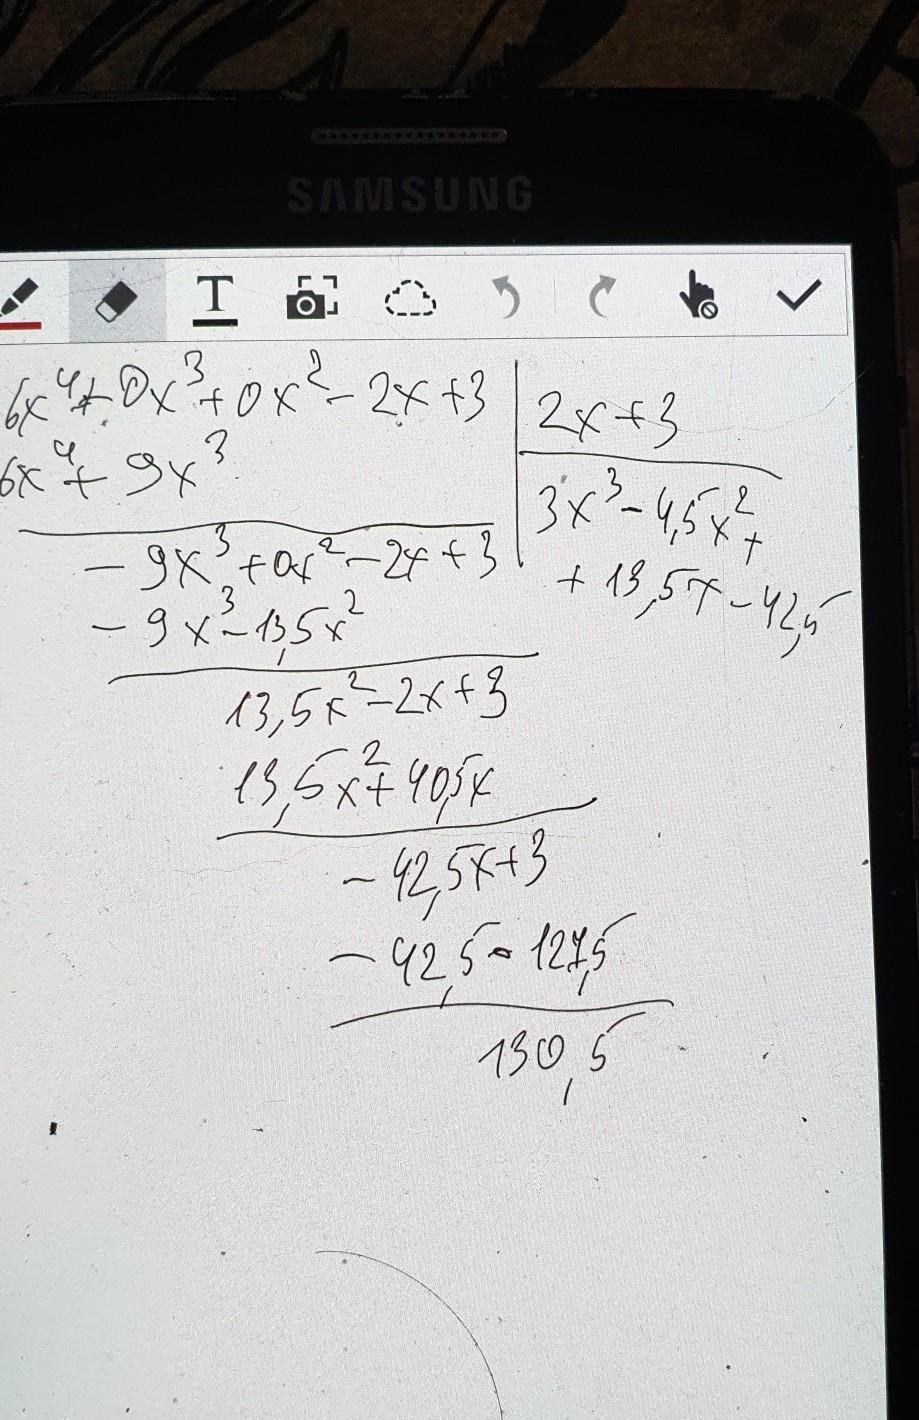 SAMSUNG
T
6x⁴+0x³+0x²-2x+3
2x+3
6x⁴+9x³
3x³-4,5x²+
-9x³+0x²-2x+3
+13,5x-42,5
-9x³-13,5x²
13,5x²-2x+3
13,5x²+40,5x
-42,5x+3
-42,5-127,5
130,5